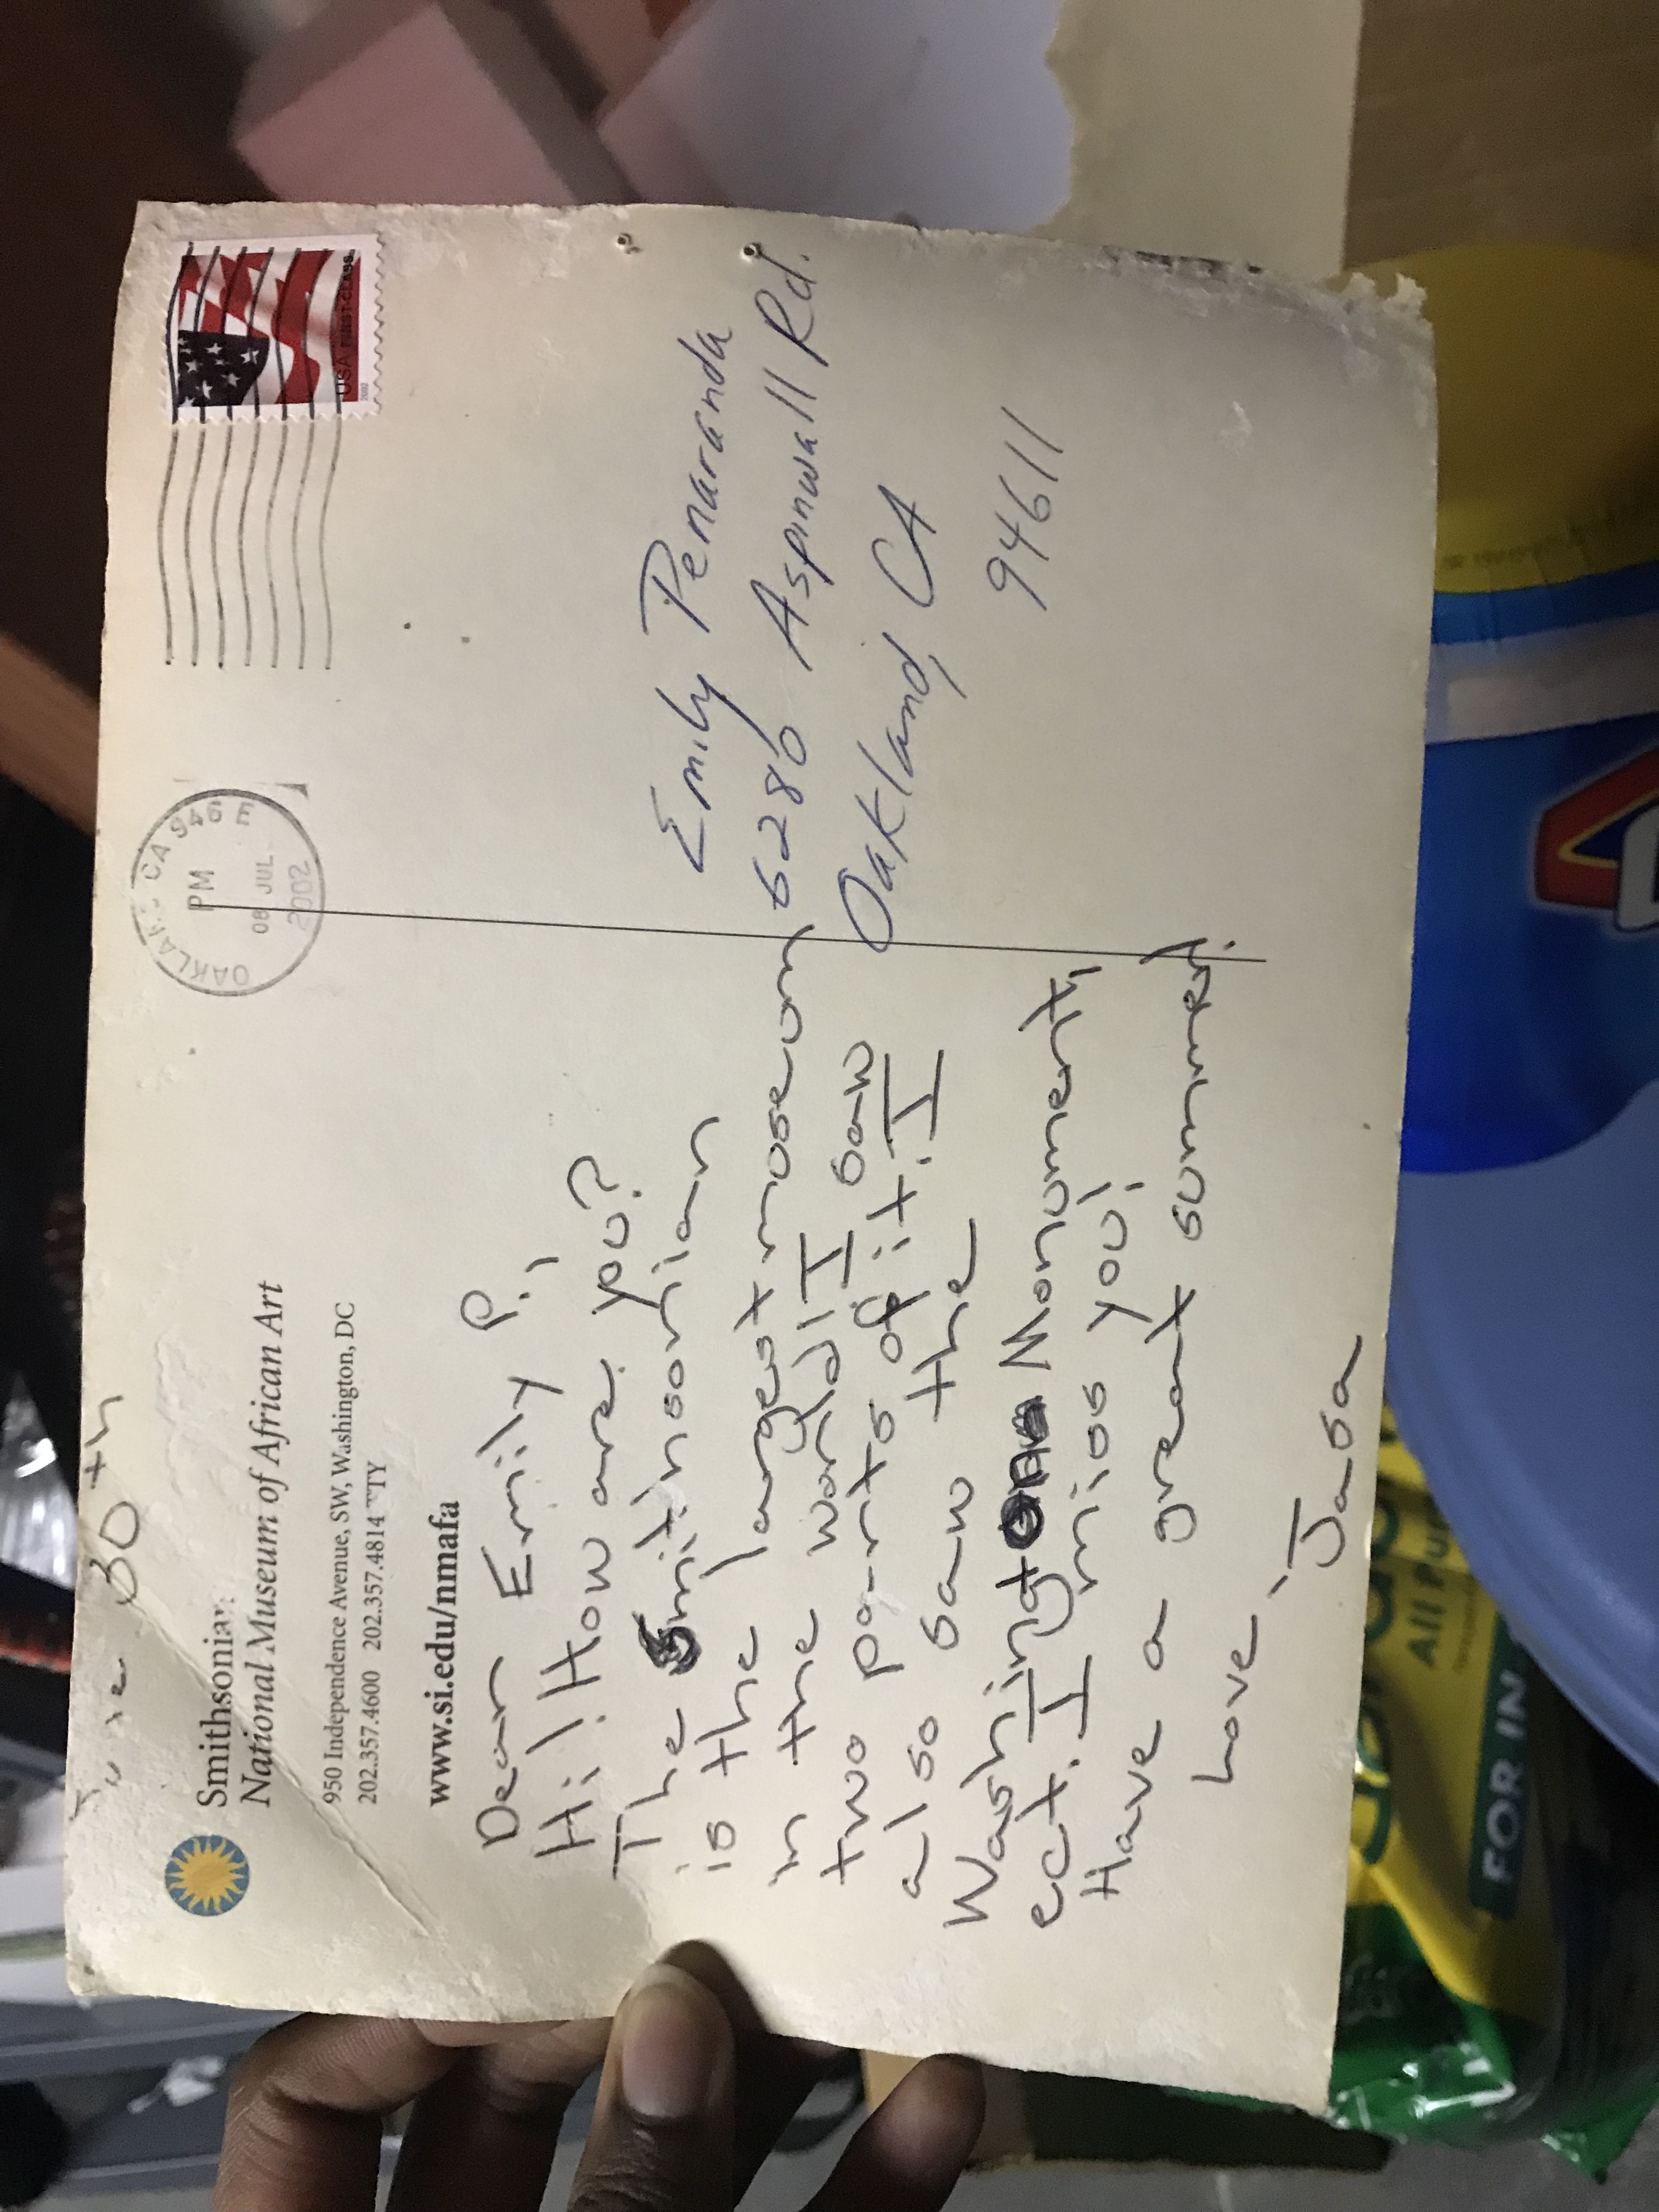 June 30th
Smithsonian
National Museum of African Art
950 Independence Avenue, SW, Washington, DC
202.357.4600 202.357.4814 TTY
www.si.edu/nmafa
Dear Emily P.,
Hi! How are you?
The Smithsonian
is the largest moseum
in the world! I saw
two parts of it. I
also saw the
Washington Monument,
ect. I miss you!
Have a great summer!
Love,
Jasa
OAKLAND CA 946 E
PM
08 JUL
2002
USA FIRST-CLASS
2002
Emily Penaranda
6280 Aspinwall Rd.
Oakland, CA
94611
All Pu
FOR IN